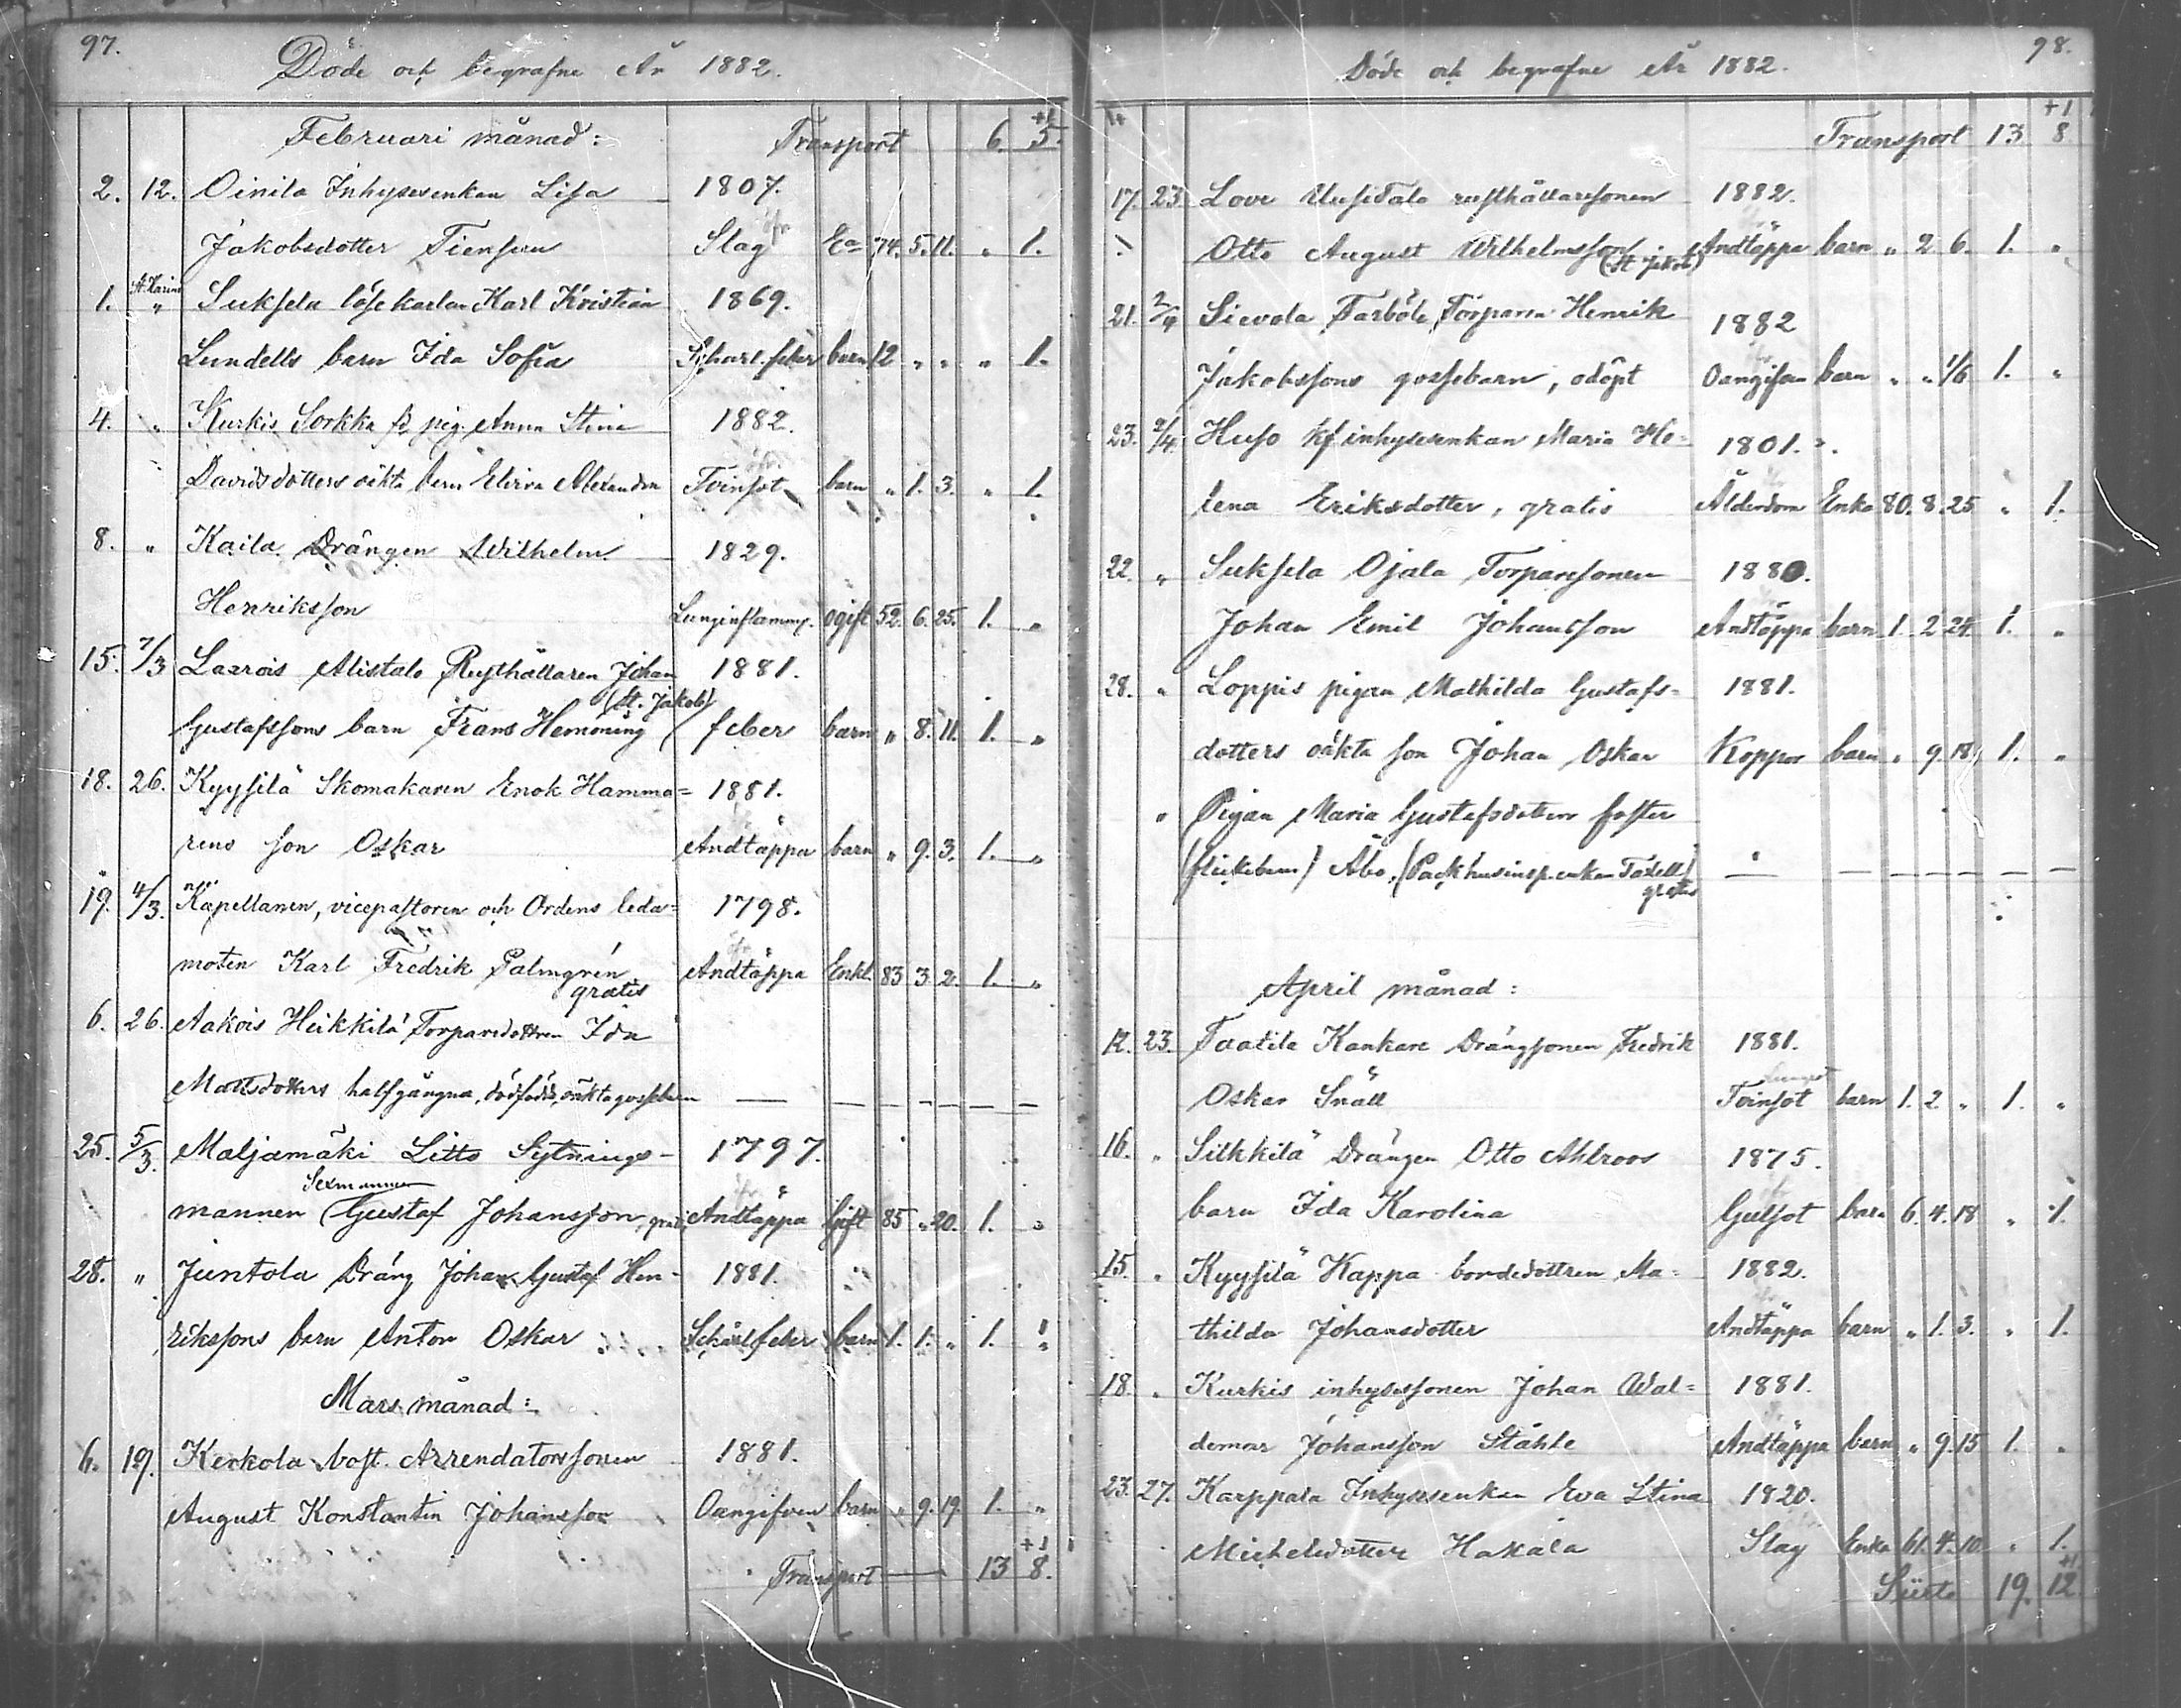 97.
Döde och begrafne År 1882.
Februari månad: Transport 6. +1 5.
2. 12. Oinila Inhysesenkan Lisa 1807.
Jakobsdotter Slag En 74. 5. 11. " 1.
1. St. Karins " Suksela löskarlen Karl Kristian 1869.
Lundells barn Ida Sofia Scharl. feber barn 12 " " " 1.
4. " Kurkis Sorkka pig. Anna Stina 1882.
Davidsdotters oäkta barn Elvira Alexandra Tvinsot barn " 1. 3. " 1.
8. " Kaila Drängen Wilhelm 1829.
Henriksson Lunginflamm. ogift 52. 6. 25. 1. "
15. 7/3 Laarois Alistalo Rusthållaren Johan 1881.
(St. Jakob)
Gustafssons barn Frans Hemming feber barn " 8. 11. 1. "
18. 26. Kyysilä Skomakaren Enok Hamma= 1881.
rens son Oskar Andtäppa barn " 9. 3. 1. "
19. 4/3. Kapellanen, vicepastoren och Ordens leda= 1798.
moten Karl Fredrik Palmgrén Andtäppa Enkl. 83 3 2. 1. "
gratis
6. 26. Aakois Heikkilä Torparedottren Ida
Mattsdotters halfgångna, dödfödda, oäkta gossebarn — — — — — —
25. 5/3. Maljamäki Litto Sytnings- 1797.
Sexmannen
mannen Gustaf Johansson, gratis Andtäppa Gift 85 " 20. 1. "
28. " Juntola Dräng Johan Gustaf Hen- 1881.
rikssons barn Anton Oskar Scharl. feber barn 1. 1. " 1. "
Mars månad:
6. 19. Kerkola bost. Arrendatorssonen 1881.
August Konstantin Johansson Oangifven barn " 9. 19. 1. "
Transport — 13 +1 8.
98.
Döde och begrafne År 1882.
Transport 13 +1 8
17. 23. Love Uusitalo rusthållaresonen 1882.
Otto August Wilhelmsson (St. Jakob) Andtäppa barn " 2 6. 1. "
21. 2/4 Sievola Torparen Henrik 1882
Jakobssons gossebarn, odöpt Oangifven barn " " 1/6 1. "
23. 2/4. Huso inhysesenkan Maria He= 1801.
lena Eriksdotter, gratis Ålderdom Enka 80. 8. 25 " 1.
22. " Suksela Ojala Torparesonen 1880.
Johan Emil Johansson Andtäppa barn 1. 2 24. 1. "
28. " Loppis pigan Mathilda Gustafs= 1881.
dotters oäkta son Johan Oskar Koppor barn " 9. 18. 1. "
" Pigan Maria Gustafsdotters foster
(flickebarn) Åbo, (Packhusinsp. enkan Taxell) — — — — — —
gratis
April månad:
12. 23. Taatila Kankare Drängsonen Fredrik 1881.
Lungsot
Oskar Snäll Tvinsot barn 1. 2 " 1. "
16. " Silkkilä Drängen Otto Ahlroos 1875.
barn Ida Karolina Gulsot barn 6. 4. 18 " 1.
15. " Kyysilä Kappa bondedottren Ma= 1882.
thilda Johansdotter Andtäppa barn " 1. 3. " 1.
18. " Kurkis inhysessonen Johan Wal= 1881.
demar Johansson Ståhle Andtäppa barn " 9. 15 1. "
23. 27. Karppala Inhysesenkan Eva Stina 1820.
Michelsdotter Hakala Slag Enka 61. 4. 10. " 1.
19. +1 12